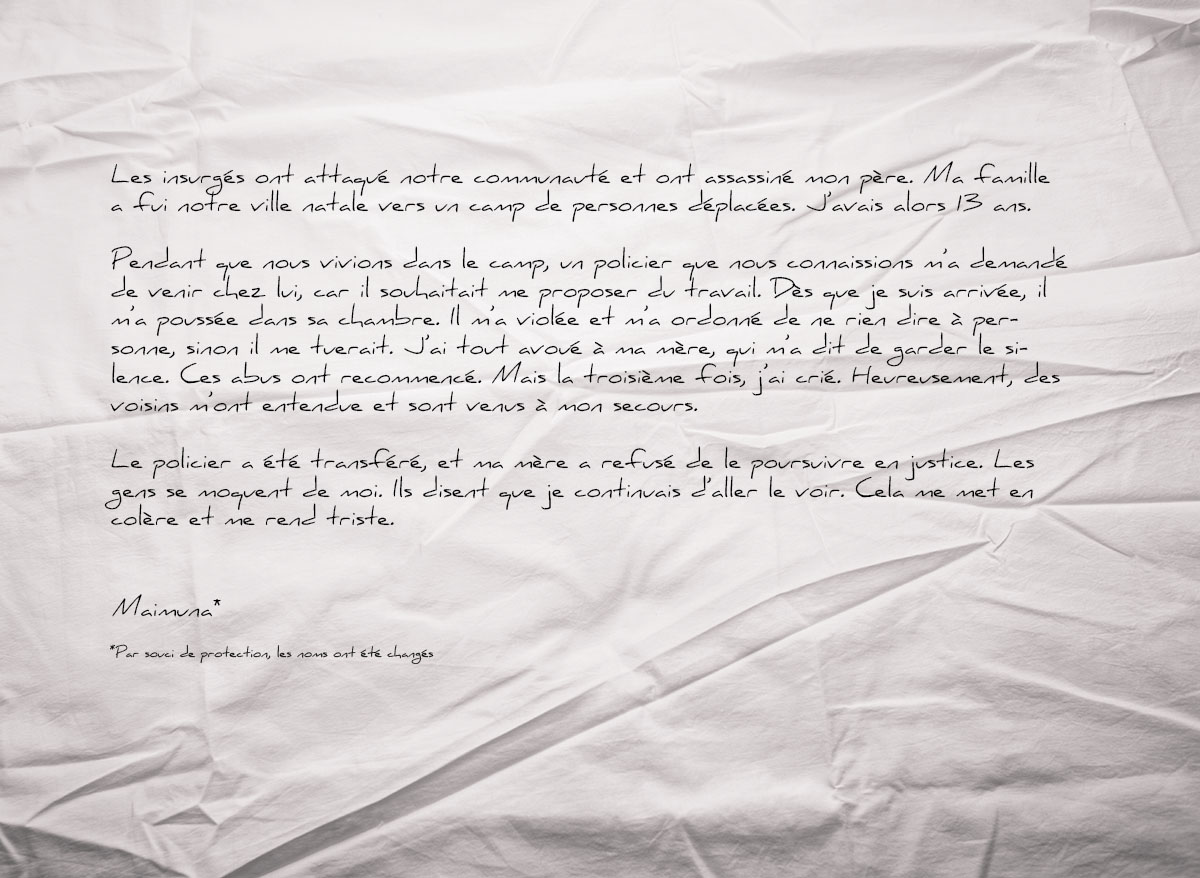 Les insurgés ont attaqué notre communauté et ont assassiné mon père. Ma famille
a fui notre ville natale vers un camp de personnes déplacées. J'avais alors 13 ans.
Pendant que nous vivions dans le camp, un policier que nous connaissions m'a demandé
de venir chez lui, car il souhaitait me proposer du travail. Dès que je suis arrivée, il
m'a poussée dans sa chambre. Il m'a violée et m'a ordonné de ne rien dire à per-
sonne, sinon il me tuerait. J'ai tout avoué à ma mère, qui m'a dit de garder le si-
lence. Ces abus ont recommencé. Mais la troisième fois, j'ai crié. Heureusement, des
voisins m'ont entendue et sont venus à mon secours.
Le policier a été transféré, et ma mère a refusé de le poursuivre en justice. Les
gens se moquent de moi. Ils disent que je continuais d'aller le voir. Cela me met en
colère et me rend triste.
Maimuna*
*Par souci de protection, les noms ont été changés